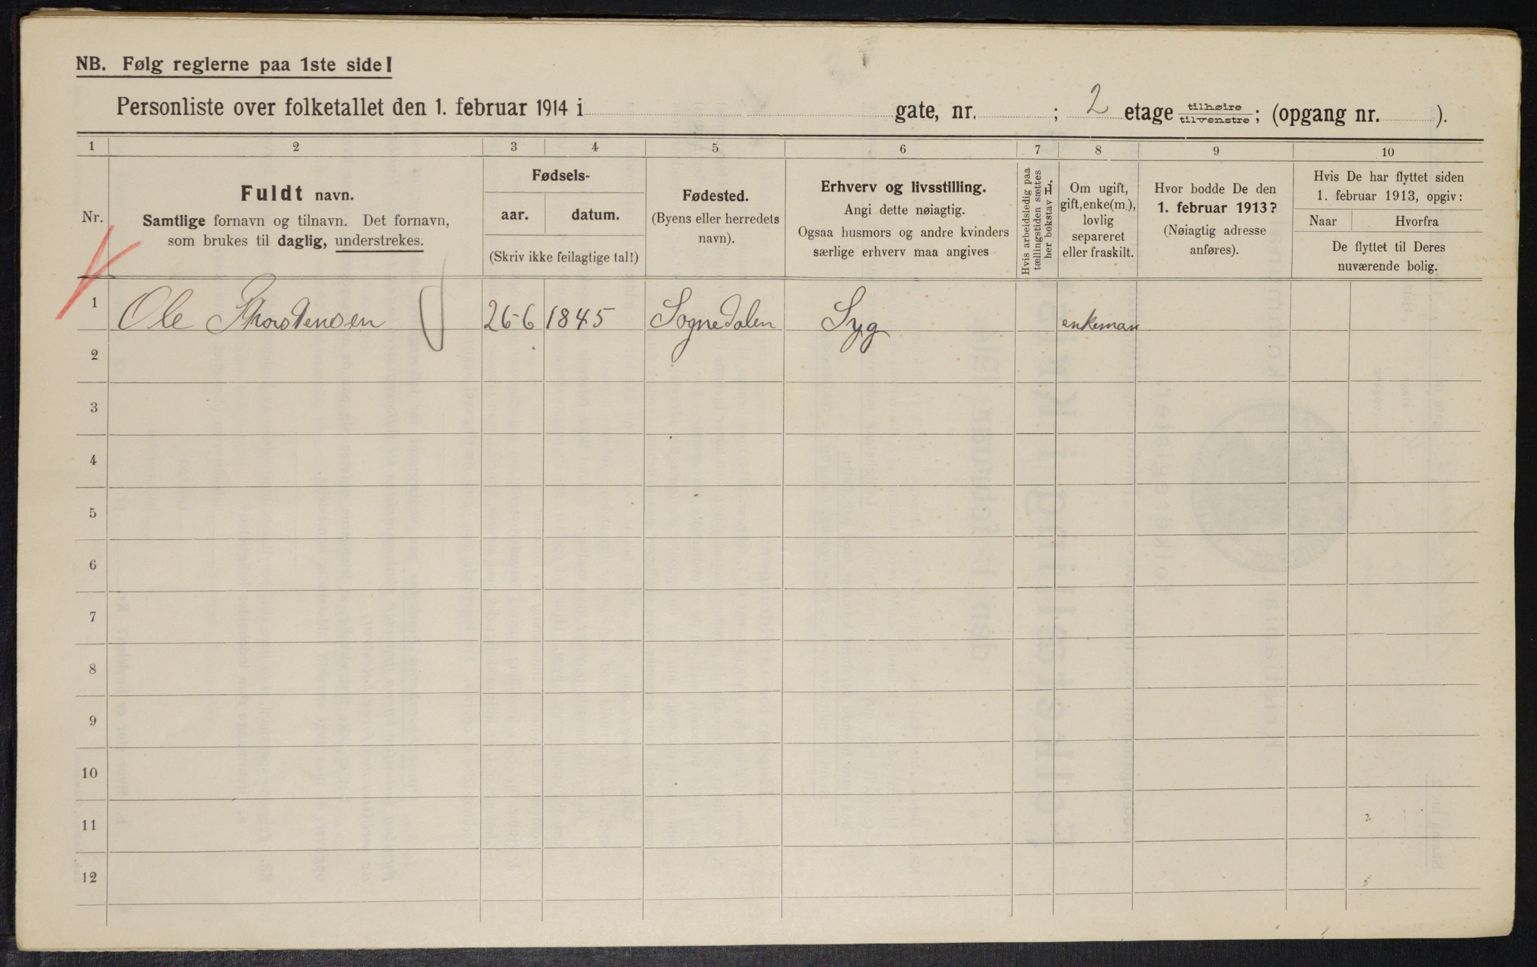 NB. Følg reglerne paa 1ste side!
Personliste over folketallet den 1. februar 1914 i gate, nr. ; 2 etage tilhøire tilvenstre; (opgang nr. ).
1 2 3 4 5 6 7 8 9 10
Nr.
Fuldt navn.
Samtlige fornavn og tilnavn. Det fornavn,
som brukes til daglig, understrekes.
Fødsels-
aar. datum.
(Skriv ikke feilagtige tal!)
Fødested.
(Byens eller herredets
navn).
Erhverv og livsstilling.
Angi dette nøiagtig.
Ogsaa husmors og andre kvinders
særlige erhverv maa angives
Hvis arbeidsledig paa
tællingstiden sættes
her bokstav L.
Om ugift,
gift, enke(m.),
lovlig
separeret
eller fraskilt.
Hvor bodde De den
1. februar 1913?
(Nøiagtig adresse
anføres).
Hvis De har flyttet siden
1. februar 1913, opgiv:
Naar Hvorfra
De flyttet til Deres
nuværende bolig.
1 Ole Thorstensen 26-6 1845 Sognedalen Syg enkeman
2
3
4
5
6
7
8
9
10
11
12